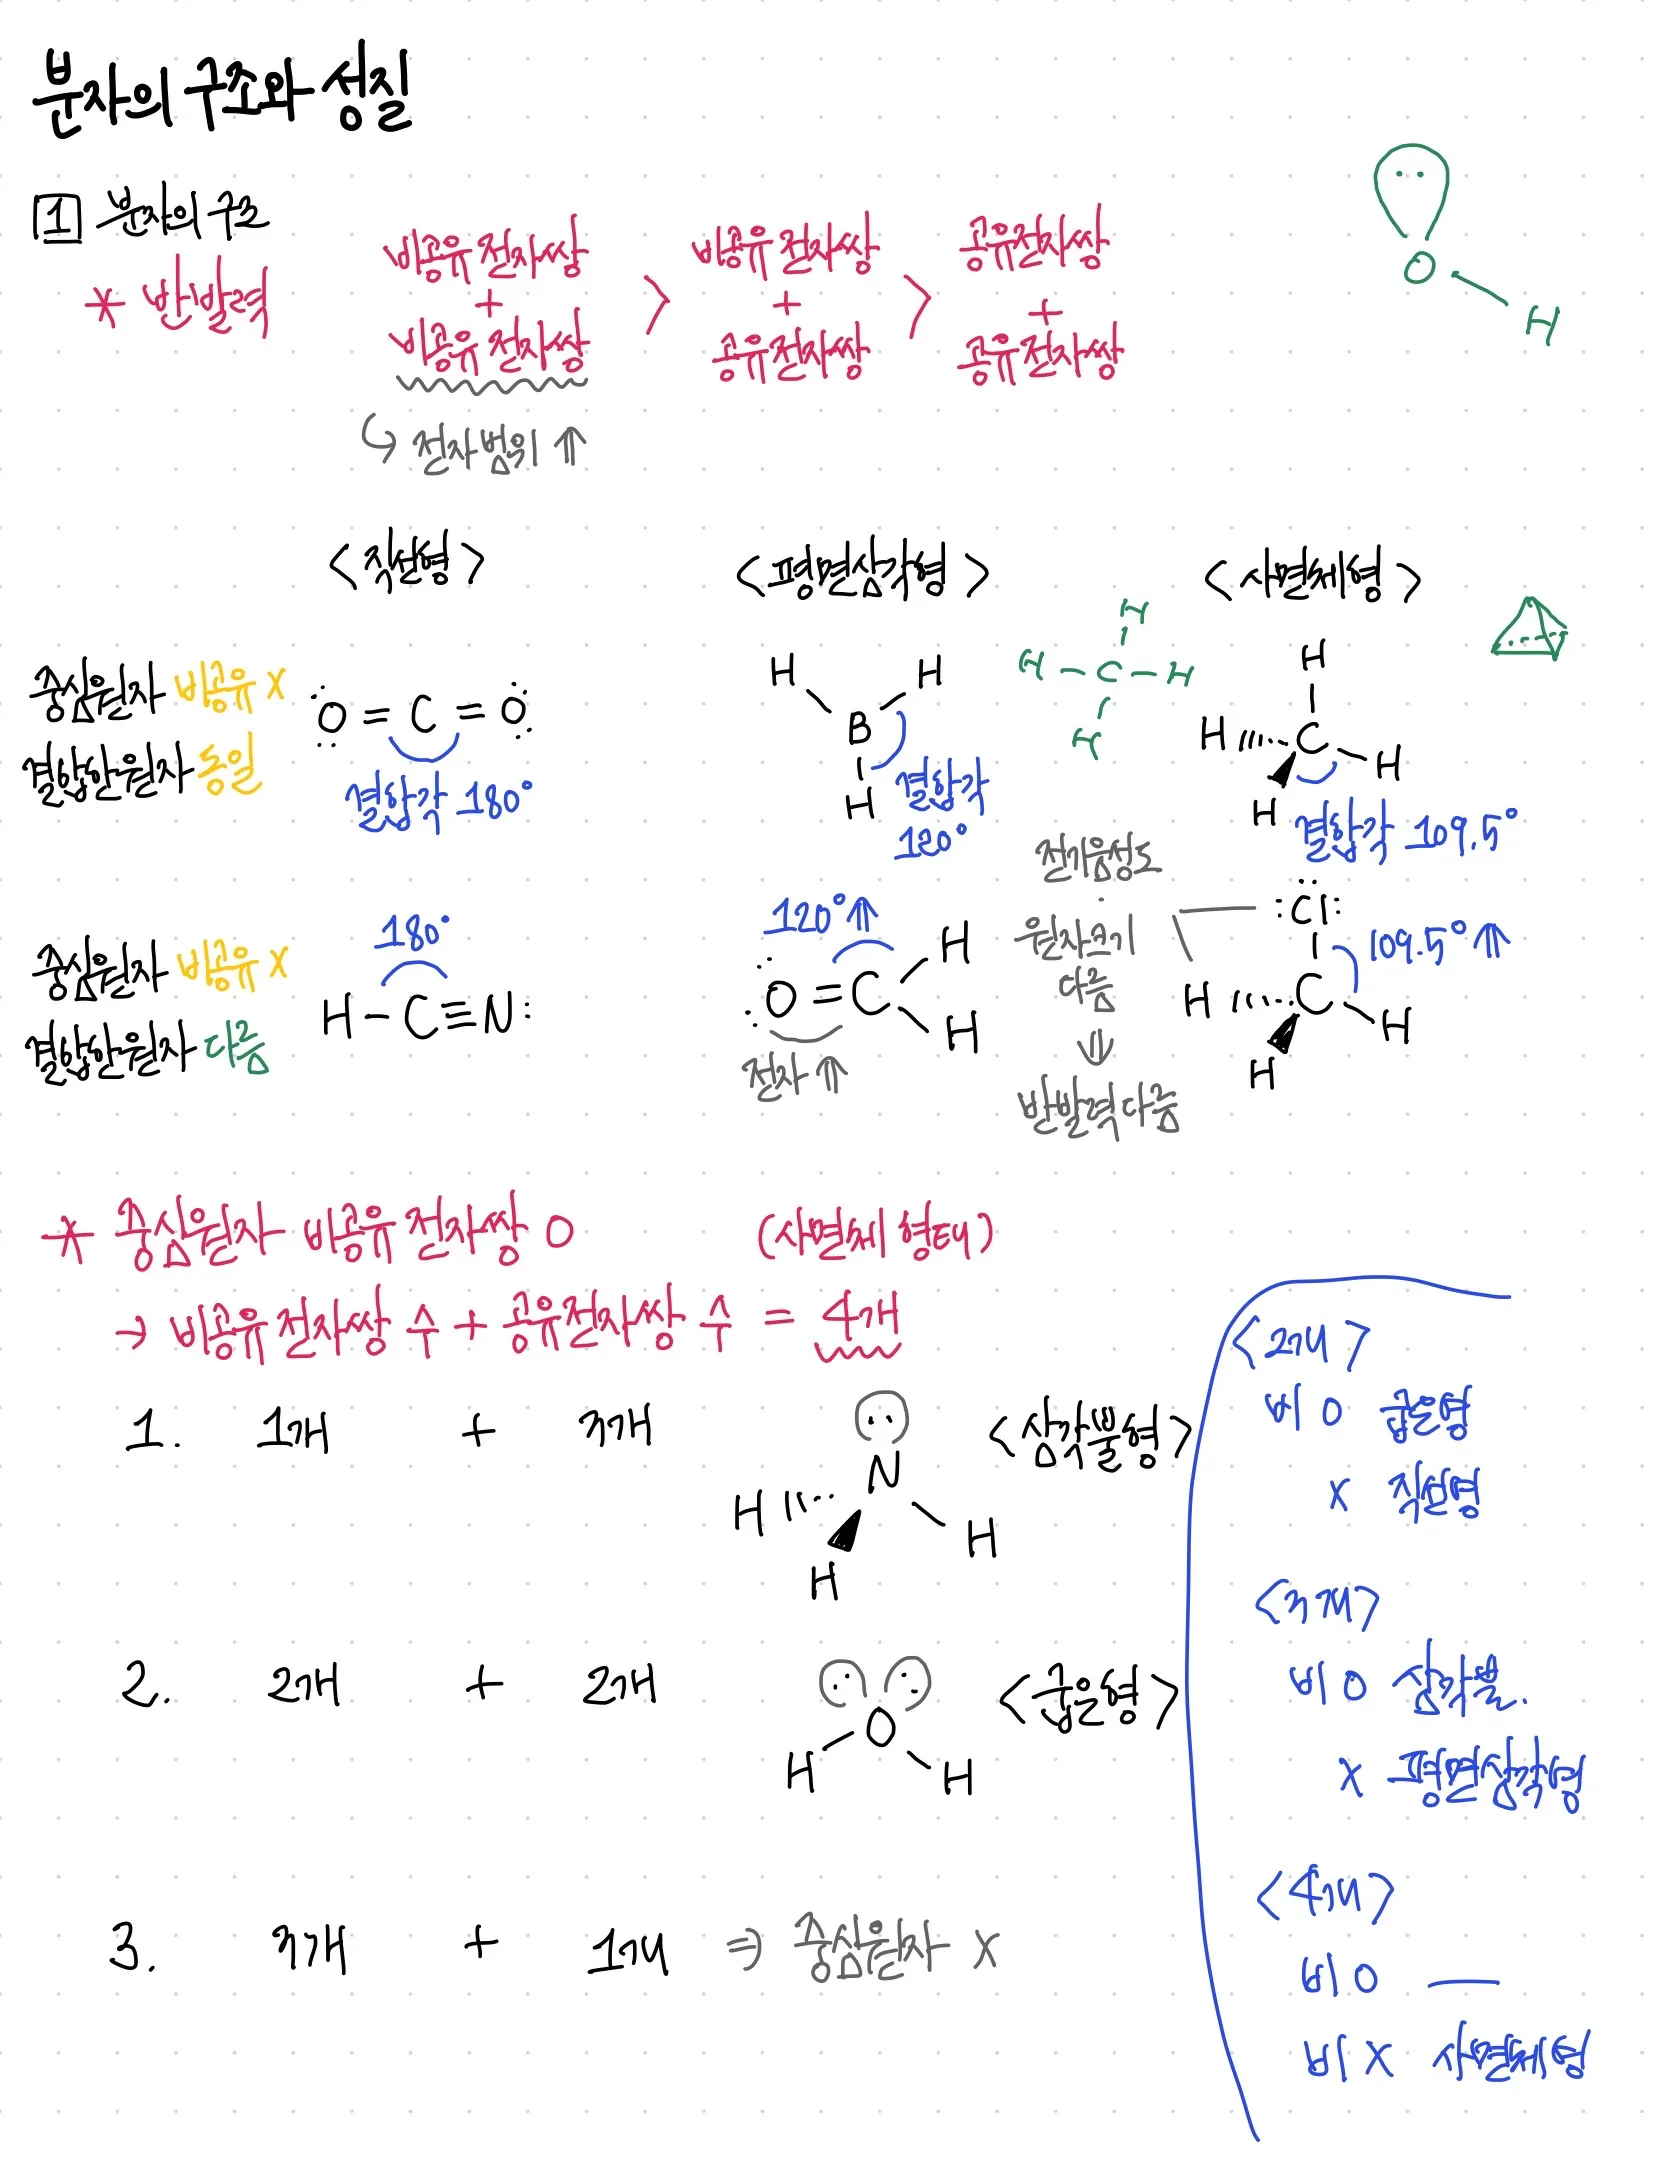 분자의 구조와 성질
1 분자의 구조
* 반발력
비공유 전자쌍 + 비공유 전자쌍 > 비공유 전자쌍 + 공유전자쌍 > 공유전자쌍 + 공유전자쌍
↳ 전자범위 ⇑
O
H
<직선형> <평면삼각형> <사면체형>
중심원자 비공유 X
결합한원자 동일
O = C = O
결합각 180°
H H
B
H
결합각
120°
H
H - C - H
H
H
H C H
H
결합각 109.5°
중심원자 비공유 X
결합한원자 다름
180°
H - C ≡ N:
120°⇑
O = C
H
H
전자 ⇑
전기음성도
·
원자크기
다름
⇓
반발력 다름
:Cl:
109.5°⇑
H C H
H
* 중심원자 비공유 전자쌍 O (사면체 형태)
→ 비공유 전자쌍 수 + 공유전자쌍 수 = 4개
1. 1개 + 3개
N
H H
H
<삼각뿔형>
2. 2개 + 2개
O
H H
<굽은형>
3. 3개 + 1개 ⇒ 중심원자 X
<2개>
비 O 굽은형
X 직선형
<3개>
비 O 삼각뿔.
X 평면삼각형
<4개>
비 O —
비 X 사면체형